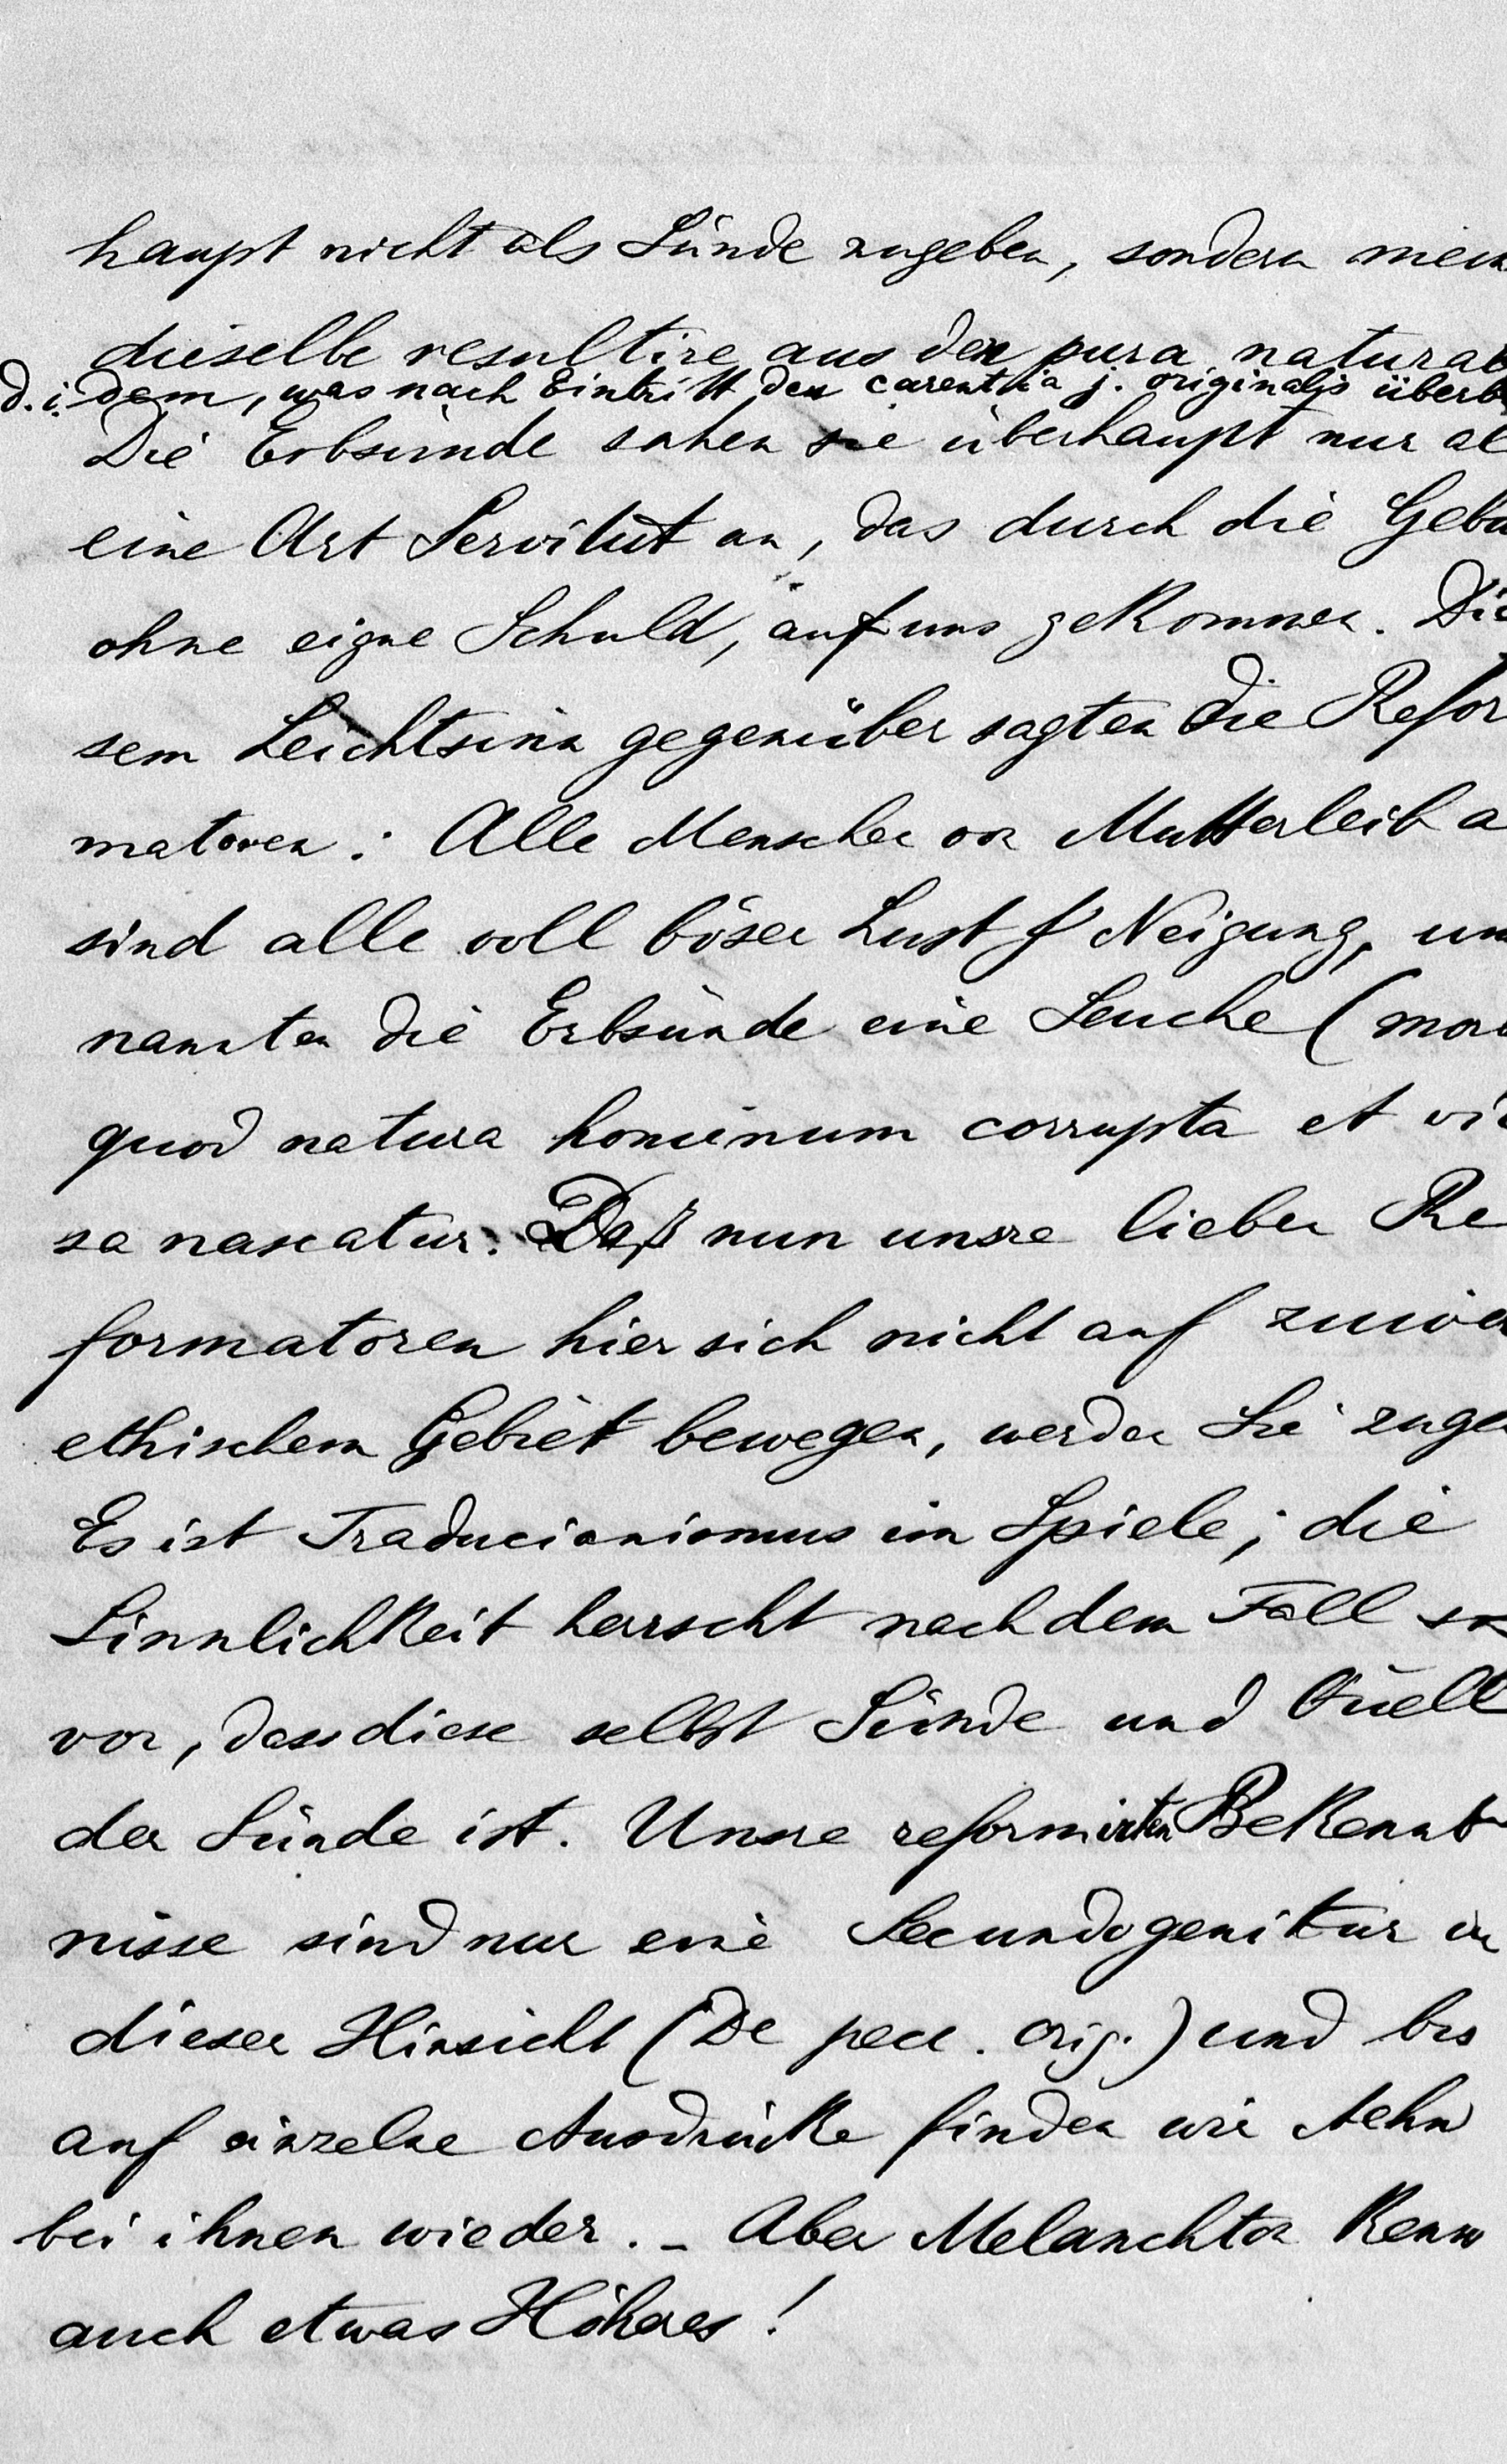 haupt nicht als Sünde zugeben, sondern mein
dieselbe resultire aus den pura natural
d. i. dem, was nach Eintritt der carentia j. originalis überb
Die Erbsünde sahen sie überhaupt nur al
eine Art Servitut an, das durch die Gebu
ohne eigne Schuld, auf uns gekommen. Die
sem Leichtsinn gegenüber sagten die Refor
matoren: Alle Menschen von Mutterleib a
sind alle voll böser Lust & Neigung, un
nannten die Erbsünde eine Seuche (morb
quod natura hominum corrupta et vi
sa nascatur. Daß nun unsre lieben Re
formatoren hier sich nicht auf
ethischem Gebiet bewegen, werden Sie zuge
Es ist Traducianismus im Spiele; die
Sinnlichkeit herrscht nach dem Fall so
vor, dass diese selbst Sünde und Quell
der Sünde ist. Unsre reformirten Bekennt
nisse sind nur eine Secundogenitur in
dieser Hinsicht (De pecc. orig.) und bis
auf einzelne Ausdrücke finden wir Aehn
bei ihnen wieder. – Aber Melanchton kenn
auch etwas Höheres!